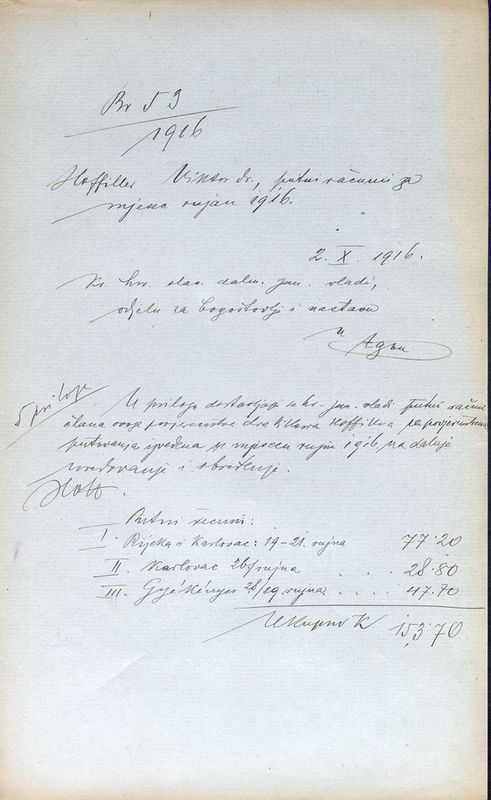 Br 59
1916
Hoffiller Viktor dr., putni računi za
mjesec rujan 1916.
2. X. 1916.
Kr. hrv. slav. dalm. zem. vladi,
odjelu za bogoštovlje i nastavu
u
Zgbu
5 priloga
U prilogu dostavljaju se kr. zem. vladi putni računi
člana ovoga povjerenstva dra Viktora Hoffillera za povjerenstvena
putovanja izvedena u mjesecu rujnu 1916, na daljnje
uredovanje i obračunanje.
Hoff.
Putni računi:
I. Rijeka i Karlovac: 19-21. rujna 77.20
II. Karlovac 26/rujna .... 28.80
III. Gyékényes 28/29 rujna .... 47.70
Ukupno K 153.70